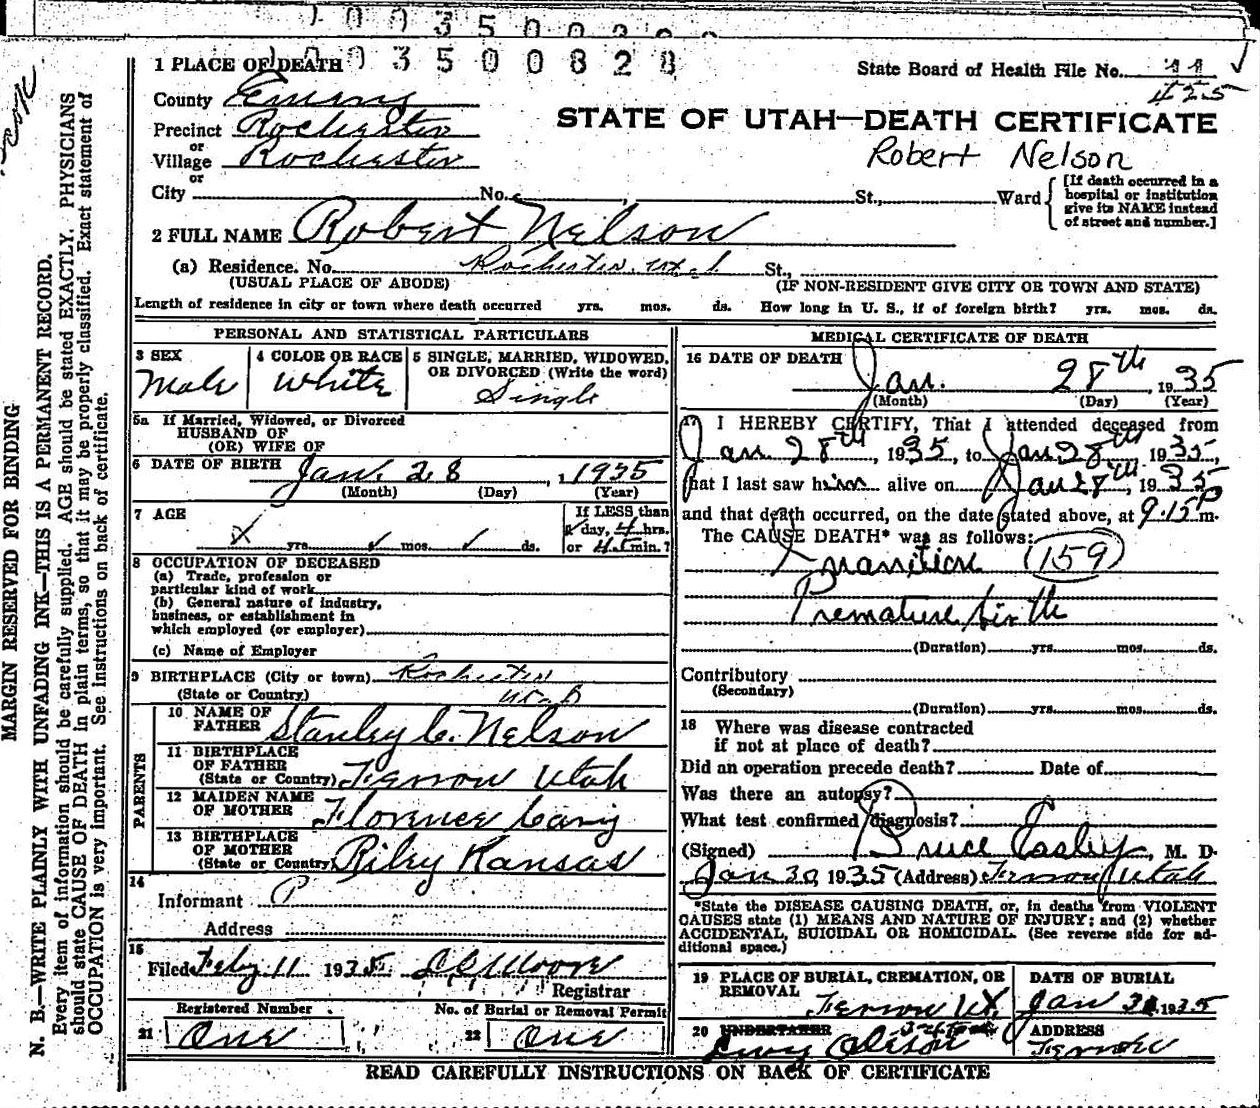 1 0 0 3 5 0 0
1 0 0 3 5 0 0 8 2 8
1 PLACE OF DEATH
State Board of Health File No. 11
425
County Emery
Precinct Rochester
or
Village Rochester
or
STATE OF UTAH—DEATH CERTIFICATE
Robert Nelson
City No. St., Ward
[If death occurred in a
hospital or institution
give its NAME instead
of street and number.]
2 FULL NAME Robert Nelson
(a) Residence. No. Rochester, Utah St.,
(USUAL PLACE OF ABODE) (IF NON-RESIDENT GIVE CITY OR TOWN AND STATE)
Length of residence in city or town where death occurred yrs. mos. ds. How long in U. S., if of foreign birth? yrs. mos. ds.
PERSONAL AND STATISTICAL PARTICULARS
3 SEX
Male
4 COLOR OR RACE
White
5 SINGLE, MARRIED, WIDOWED,
OR DIVORCED (Write the word)
Single
5a If Married, Widowed, or Divorced
HUSBAND OF
(OR) WIFE OF
6 DATE OF BIRTH Jan. 28, 1935
(Month) (Day) (Year)
7 AGE
x yrs. mos. ds.
If LESS than
1 day, 4 hrs.
or 45 min.?
8 OCCUPATION OF DECEASED
(a) Trade, profession or
particular kind of work
(b) General nature of industry,
business, or establishment in
which employed (or employer)
(c) Name of Employer
9 BIRTHPLACE (City or town) Rochester
(State or Country) Utah
PARENTS
10 NAME OF
FATHER Stanley C. Nelson
11 BIRTHPLACE
OF FATHER
(State or Country) Ferron Utah
12 MAIDEN NAME
OF MOTHER Florence
13 BIRTHPLACE
OF MOTHER
(State or Country) Riley Kansas
14
Informant
Address
15
Filed Feby 11 1935 Moore
Registrar
Registered Number
21 One
No. of Burial or Removal Permit
22 One
MEDICAL CERTIFICATE OF DEATH
16 DATE OF DEATH
Jan. 28th 1935
(Month) (Day) (Year)
17 I HEREBY CERTIFY, That I attended deceased from
Jan 28th, 1935, to Jan 28th 1935,
that I last saw him alive on Jan 28th, 1935
and that death occurred, on the date stated above, at 9.15 P m.
The CAUSE DEATH* was as follows:
Inanition 159
Premature birth
(Duration) yrs. mos. ds.
Contributory
(Secondary)
(Duration) yrs. mos. ds.
18 Where was disease contracted
if not at place of death?
Did an operation precede death? Date of
Was there an autopsy?
What test confirmed diagnosis?
(Signed) Bruce Easley, M. D.
Jan 30, 1935 (Address) Ferron Utah
*State the DISEASE CAUSING DEATH, or, in deaths from VIOLENT
CAUSES state (1) MEANS AND NATURE OF INJURY; and (2) whether
ACCIDENTAL, SUICIDAL OR HOMICIDAL. (See reverse side for ad-
ditional space.)
19 PLACE OF BURIAL, CREMATION, OR
REMOVAL
Ferron Ut.
DATE OF BURIAL
Jan 1935
20 UNDERTAKER
ADDRESS
Ferron
READ CAREFULLY INSTRUCTIONS ON BACK OF CERTIFICATE
MARGIN RESERVED FOR BINDING
N. B.—WRITE PLAINLY WITH UNFADING INK—THIS IS A PERMANENT RECORD.
Every item of information should be carefully supplied. AGE should be stated EXACTLY. PHYSICIANS
should state CAUSE OF DEATH in plain terms, so that it may be properly classified. Exact statement of
OCCUPATION is very important. See instructions on back of certificate.